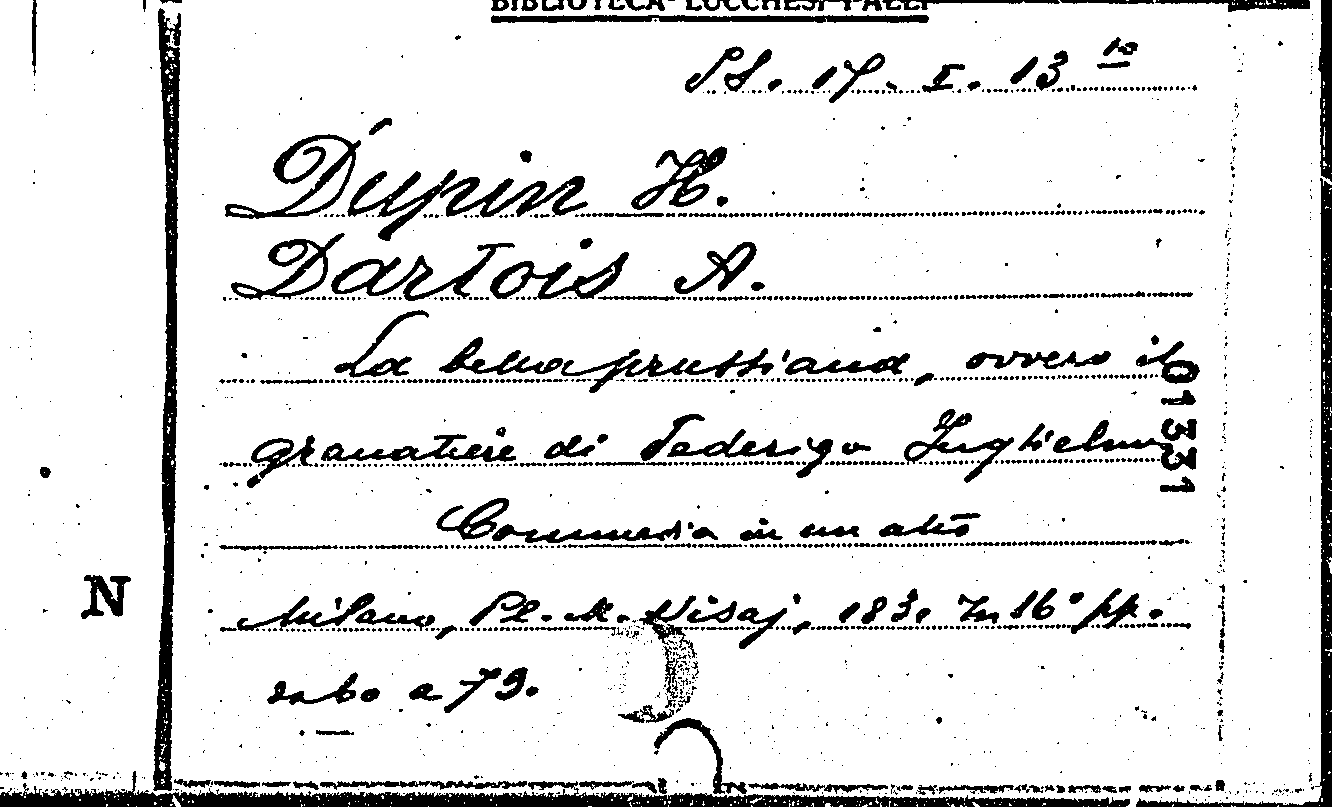 BIBLIOTECA LUCCHESI-PALLI
Pl. 17. I. 13 10
Dupin H.
Dartois A.
La bella prussiana, ovvero il
granatiere di Federigo Guglielmo
Commedia in un atto
Milano, Pl. M. Visaj, 183. In 16° pp.
a 79.
01331
N